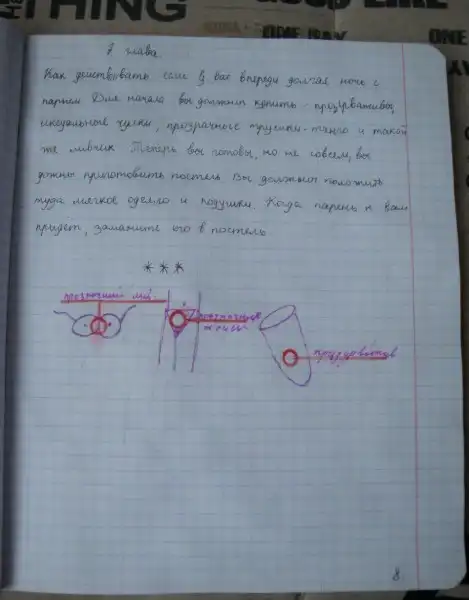 THING
GOOD LIKE
ONE DAY
ONE
глава
Как действовать если у вас впереди долгая ночь с
парнем Для начала вы должны купить - прозървативы,
сексуальные чулки, прозрачные трусики-танго и такой
же ливчик Теперь вы готовы, но не совсем, вы
должны приготовить постель Вы должны положить
туда мягкое одеяло и подушки. Когда парень к вам
придет, заманите его в постель
***
8